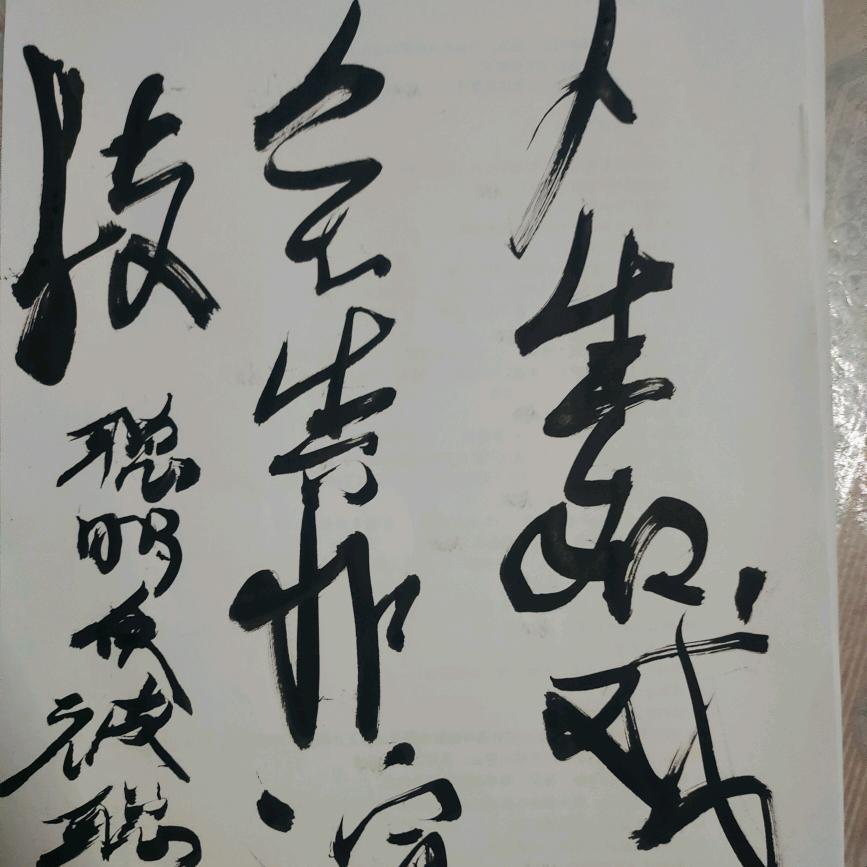 人生如戏
全靠演
技
聪明反被聪